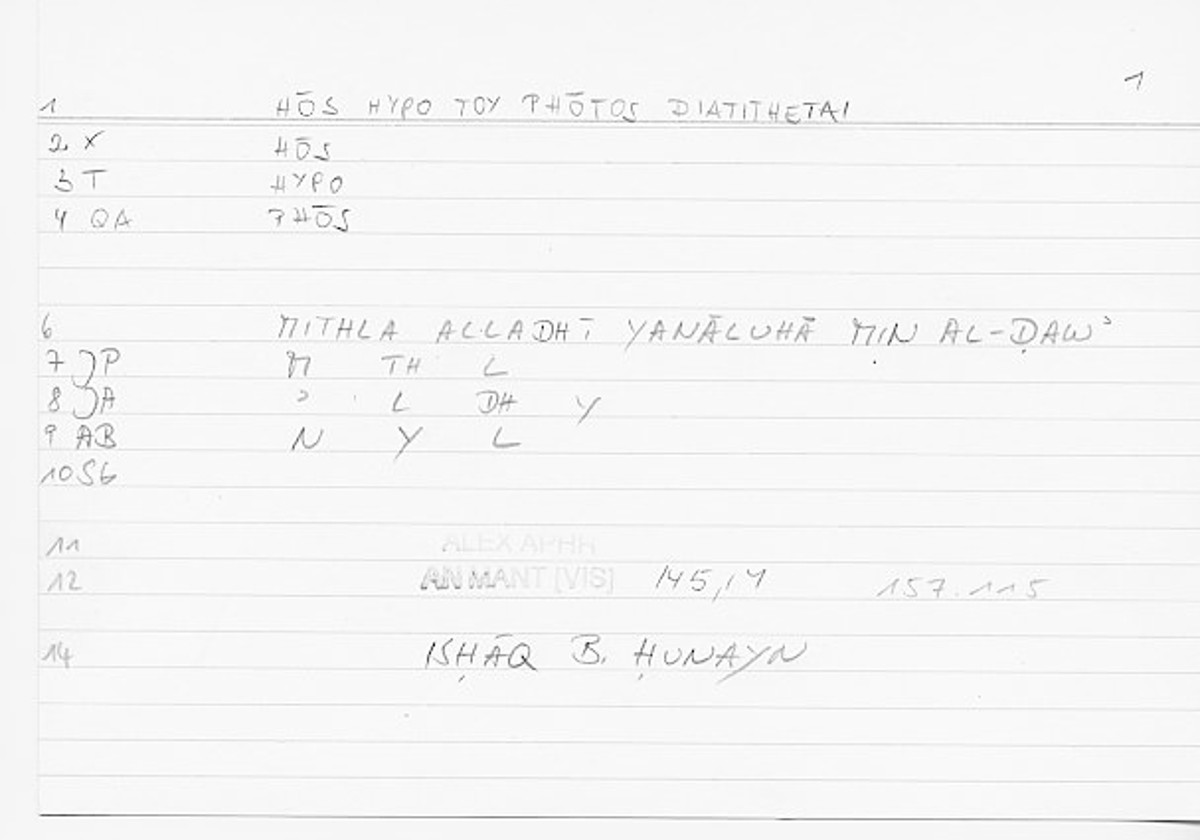 1
1 HŌS HYPO TOY PHŌTOS DIATITHETAI
2 X HŌS
3 T HYPO
4 QA PHŌS
6 MITHLA ALLADHĪ YANĀLUHĀ MIN AL-ḌAWʾ
7 JP M TH L
8 JA ʾ L DH Y
9 AB N Y L
10 SG
11 ALEX APHR
12 AN MANT [VIS] 145,17 157.115
14 ISḤĀQ B. ḤUNAYN